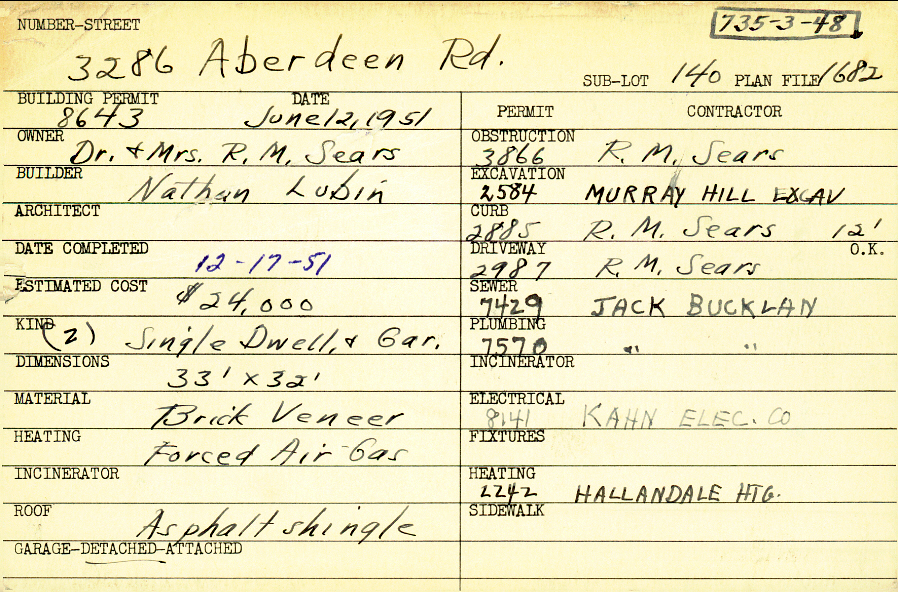 NUMBER-STREET
735-3-48
3286 Aberdeen Rd.
SUB-LOT 140 PLAN FILE 1682
BUILDING PERMIT DATE
8643 June 12, 1951
OWNER
Dr. & Mrs. R. M. Sears
BUILDER
Nathan Lubin
ARCHITECT
DATE COMPLETED
12-17-51
ESTIMATED COST
$24,000
KIND
(2) Single Dwell. & Gar.
DIMENSIONS
33' x 32'
MATERIAL
Brick Veneer
HEATING
Forced Air Gas
INCINERATOR
ROOF
Asphalt shingle
GARAGE-DETACHED-ATTACHED
PERMIT CONTRACTOR
OBSTRUCTION
3866 R. M. Sears
EXCAVATION
2584 MURRAY HILL EXCAV
CURB
2885 R. M. Sears 12'
DRIVEWAY O.K.
2987 R. M. Sears
SEWER
7429 JACK BUCKLAN
PLUMBING
7570 " "
INCINERATOR
ELECTRICAL
8141 KAHN ELEC. CO
FIXTURES
HEATING
2242 HALLANDALE HTG.
SIDEWALK